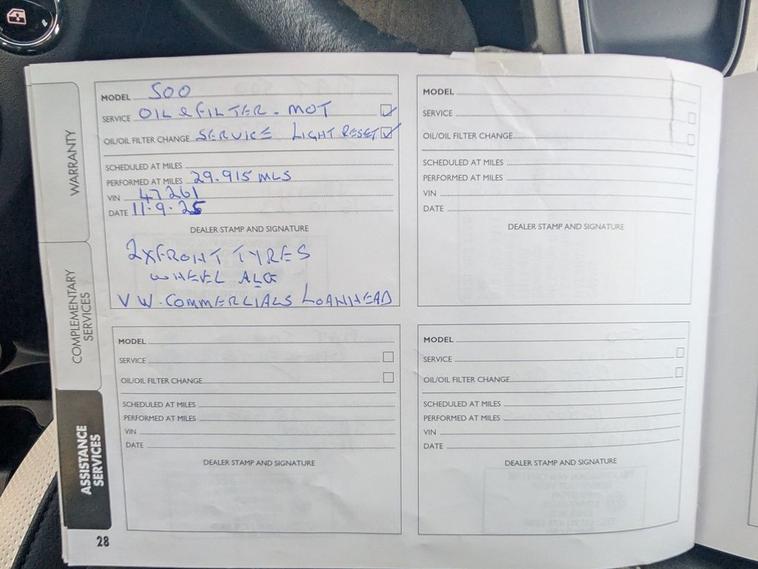 WARRANTY
COMPLEMENTARY
SERVICES
ASSISTANCE
SERVICES
MODEL 500
SERVICE OIL & FILTER - MOT
OIL/OIL FILTER CHANGE SERVICE LIGHT RESET
SCHEDULED AT MILES
PERFORMED AT MILES 29.915 MLS
VIN 47261
DATE 11-9-25
DEALER STAMP AND SIGNATURE
2XFRONT TYRES
WHEEL ALG
VW.COMMERCIALS LOANHEAD
MODEL
SERVICE
OIL/OIL FILTER CHANGE
SCHEDULED AT MILES
PERFORMED AT MILES
VIN
DATE
DEALER STAMP AND SIGNATURE
MODEL
SERVICE
OIL/OIL FILTER CHANGE
SCHEDULED AT MILES
PERFORMED AT MILES
VIN
DATE
DEALER STAMP AND SIGNATURE
MODEL
SERVICE
OIL/OIL FILTER CHANGE
SCHEDULED AT MILES
PERFORMED AT MILES
VIN
DATE
DEALER STAMP AND SIGNATURE
28